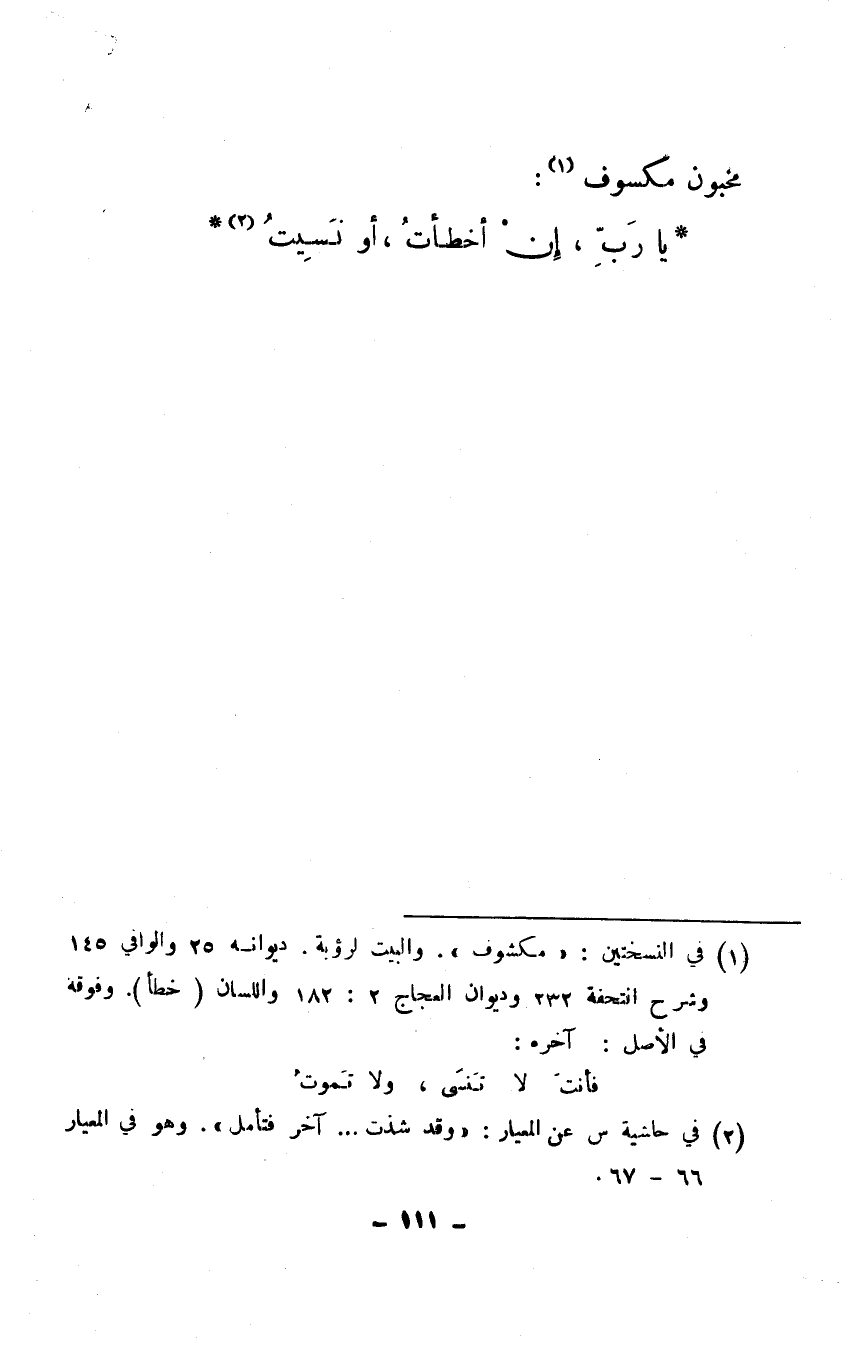 مخبون مكسوف (١) :
* يا رَبِّ ، إِنْ أخطأتُ ، أو نَسِيتُ (٢) *
(١) في النسختين : « مكشوف » . والبيت لرؤبة . ديوانه ٢٥ والوافي ١٤٥
وشرح التحفة ٢٣٢ وديوان العجاج ٢ : ١٨٢ واللسان ( خطأ ). وفوقه
في الأصل : آخره :
فأنتَ لا تَنسَى ، ولا تَموتُ
(٢) في حاشية س عن المعيار : « وقد شذت ... آخر فتأمل » . وهو في المعيار
٦٦ - ٦٧ .
- ١١١ -